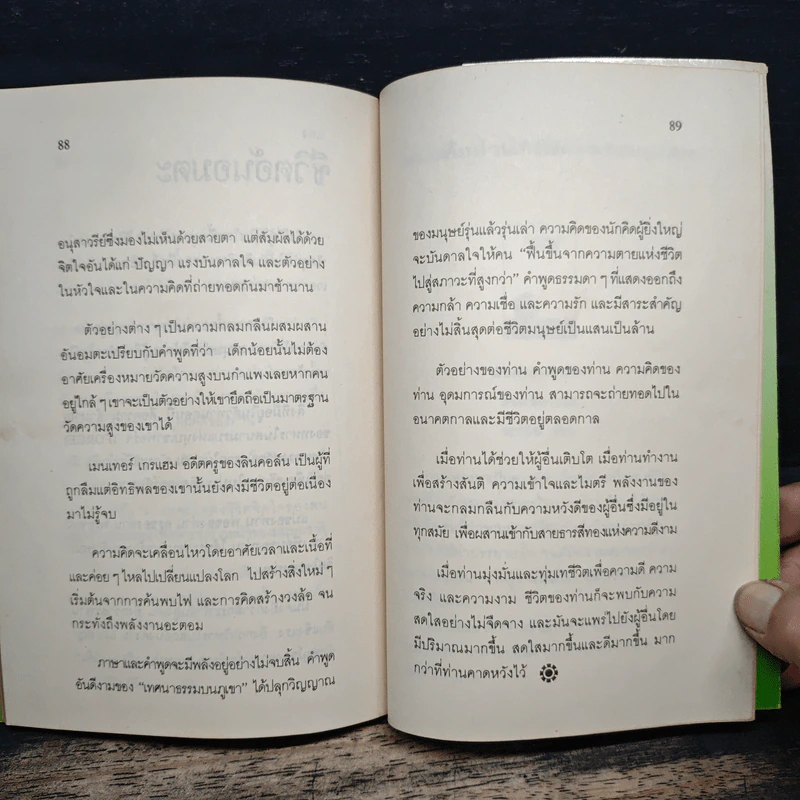 88
อนุสาวรีย์ซึ่งมองไม่เห็นด้วยสายตา แต่สัมผัสได้ด้วย
จิตใจอันได้แก่ ปัญญา แรงบันดาลใจ และตัวอย่าง
ในหัวใจและในความคิดที่ถ่ายทอดกันมาช้านาน
ตัวอย่างต่าง ๆ เป็นความกลมกลืนผสมผสาน
อันอมตะเปรียบกับคำพูดที่ว่า เด็กน้อยนั้นไม่ต้อง
อาศัยเครื่องหมายวัดความสูงบนกำแพงเลยหากคน
อยู่ใกล้ ๆ เขาจะเป็นตัวอย่างให้เขายึดถือเป็นมาตรฐาน
วัดความสูงของเขาได้
เมนเทอร์ เกรแฮม อดีตครูของลินคอล์น เป็นผู้ที่
ถูกลืมแต่อิทธิพลของเขานั้นยังคงมีชีวิตอยู่ต่อเนื่อง
มาไม่รู้จบ
ความคิดจะเคลื่อนไหวโดยอาศัยเวลาและเนื้อที่
และค่อย ๆ ไหลไปเปลี่ยนแปลงโลก ไปสร้างสิ่งใหม่ ๆ
เริ่มต้นจากการค้นพบไฟ และการคิดสร้างวงล้อ จน
กระทั่งถึงพลังงานอะตอม
ภาษาและคำพูดจะมีพลังอยู่อย่างไม่จบสิ้น คำพูด
อันดีงามของ “เทศนาธรรมบนภูเขา” ได้ปลุกวิญญาณ
89
ของมนุษย์รุ่นแล้วรุ่นเล่า ความคิดของนักคิดผู้ยิ่งใหญ่
จะบันดาลใจให้คน “ฟื้นขึ้นจากความตายแห่งชีวิต
ไปสู่สภาวะที่สูงกว่า” คำพูดธรรมดา ๆ ที่แสดงออกถึง
ความกล้า ความเชื่อ และความรัก และมีสาระสำคัญ
อย่างไม่สิ้นสุดต่อชีวิตมนุษย์เป็นแสนเป็นล้าน
ตัวอย่างของท่าน คำพูดของท่าน ความคิดของ
ท่าน อุดมการณ์ของท่าน สามารถจะถ่ายทอดไปใน
อนาคตกาลและมีชีวิตอยู่ตลอดกาล
เมื่อท่านได้ช่วยให้ผู้อื่นเติบโต เมื่อท่านทำงาน
เพื่อสร้างสันติ ความเข้าใจและไมตรี พลังงานของ
ท่านจะกลมกลืนกับความหวังดีของผู้อื่นซึ่งมีอยู่ใน
ทุกสมัย เพื่อผสานเข้ากับสายธารสีทองแห่งความดีงาม
เมื่อท่านมุ่งมั่นและทุ่มเทชีวิตเพื่อความดี ความ
จริง และความงาม ชีวิตของท่านก็จะพบกับความ
สดใสอย่างไม่จืดจาง และมันจะแพร่ไปยังผู้อื่นโดย
มีปริมาณมากขึ้น สดใสมากขึ้นและดีมากขึ้น มาก
กว่าที่ท่านคาดหวังไว้